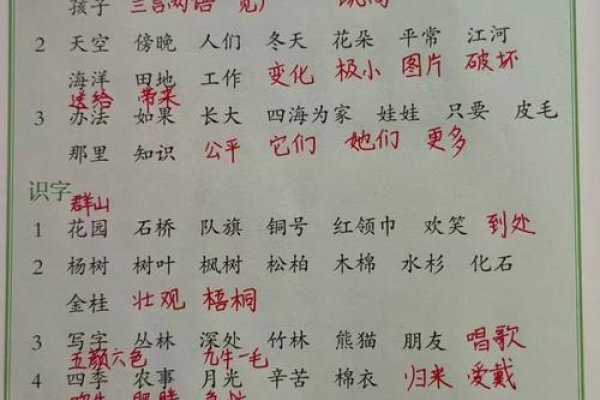 孩子 三言两语
2 天空 傍晚 人们 冬天 花朵 平常 江河
海洋 田地 工作 变化 极小 图片 破坏
送给 带来
3 办法 如果 长大 四海为家 娃娃 只要 皮毛
那里 知识 公平 它们 她们 更多
识字
群山
1 花园 石桥 队旗 铜号 红领巾 欢笑 到处
2 杨树 树叶 枫树 松柏 木棉 水杉 化石
金桂 壮观 梧桐
3 写字 丛林 深处 竹林 熊猫 朋友 唱歌
五颜六色 九牛一毛
4 四季 农事 月光 辛苦 棉衣 归来 爱戴